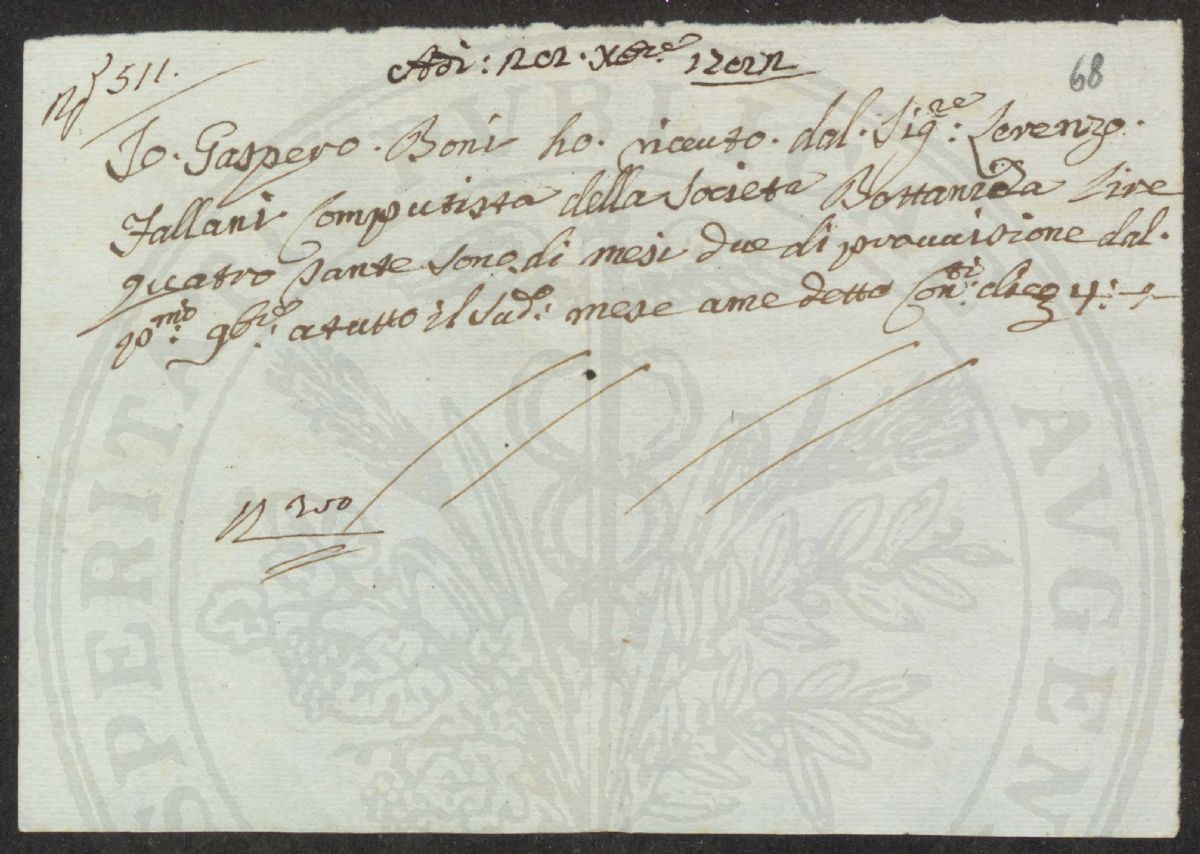 N.º 511.
Adì: Xbre.
68
Io. Gaspero. Boni ho. riceuto. dal. Sig.re: Lorenzo.
Fallani Computista della Società Bottanicha Lire
quatro Sante Sono. di mesi due di prouuisione dal.
p.mo 9bre: a tutto il Sud.o: mese a me detto Con.ti: dico 4: -
PERITAS PVBLICAE AVGEN